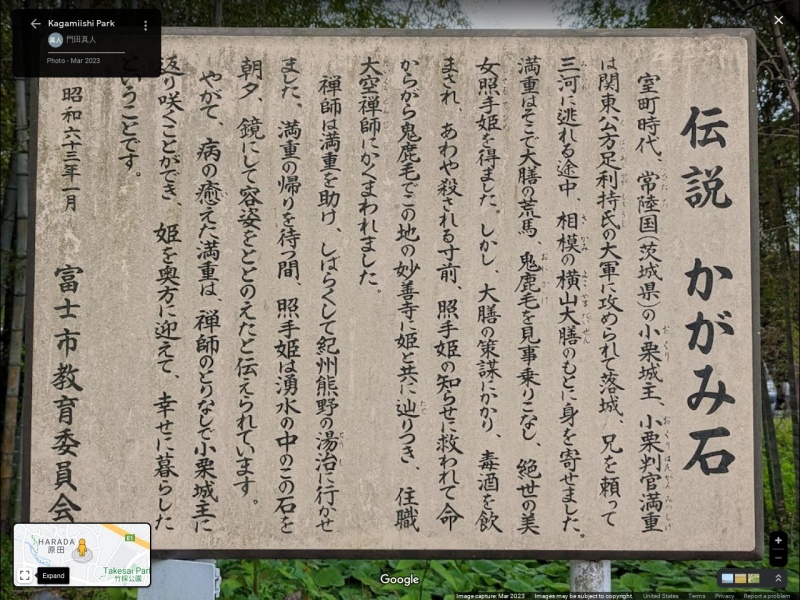 Kagamiishi Park
真人 門田真人
Photo - Mar 2023
伝説 かがみ石
室町時代、常陸国(茨城県)の小栗城主、小栗判官満重
は関東公方足利持氏の大軍に攻められて落城、兄を頼って
三河に逃れる途中、相模の横山大膳のもとに身を寄せました。
満重はそこで大膳の荒馬、鬼鹿毛を見事乗りこなし、絶世の美
女照手姫を得ました。しかし、大膳の策謀にかかり、毒酒を飲
まされ、あわや殺される寸前、照手姫の知らせに救われて命
からがら鬼鹿毛でこの地の妙善寺に姫と共に辿りつき、住職
大空禅師にかくまわれました。
禅師は満重を助け、しばらくして紀州熊野の湯治に行かせ
ました。満重の帰りを待つ間、照手姫は湧水の中のこの石を
朝夕、鏡にして容姿をととのえたと伝えられています。
やがて、病の癒えた満重は、禅師のとりなしで小栗城主に
返り咲くことができ、姫を奥方に迎えて、幸せに暮らした
ということです。
昭和六十三年一月 富士市教育委員会
HARADA
原田
E1
Takesai Par
竹採公園
Expand
Google
Image capture: Mar 2023 Images may be subject to copyright. United States Terms Privacy Report a problem